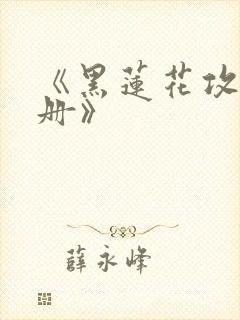 《黑蓮花攻
册》
薛永峰